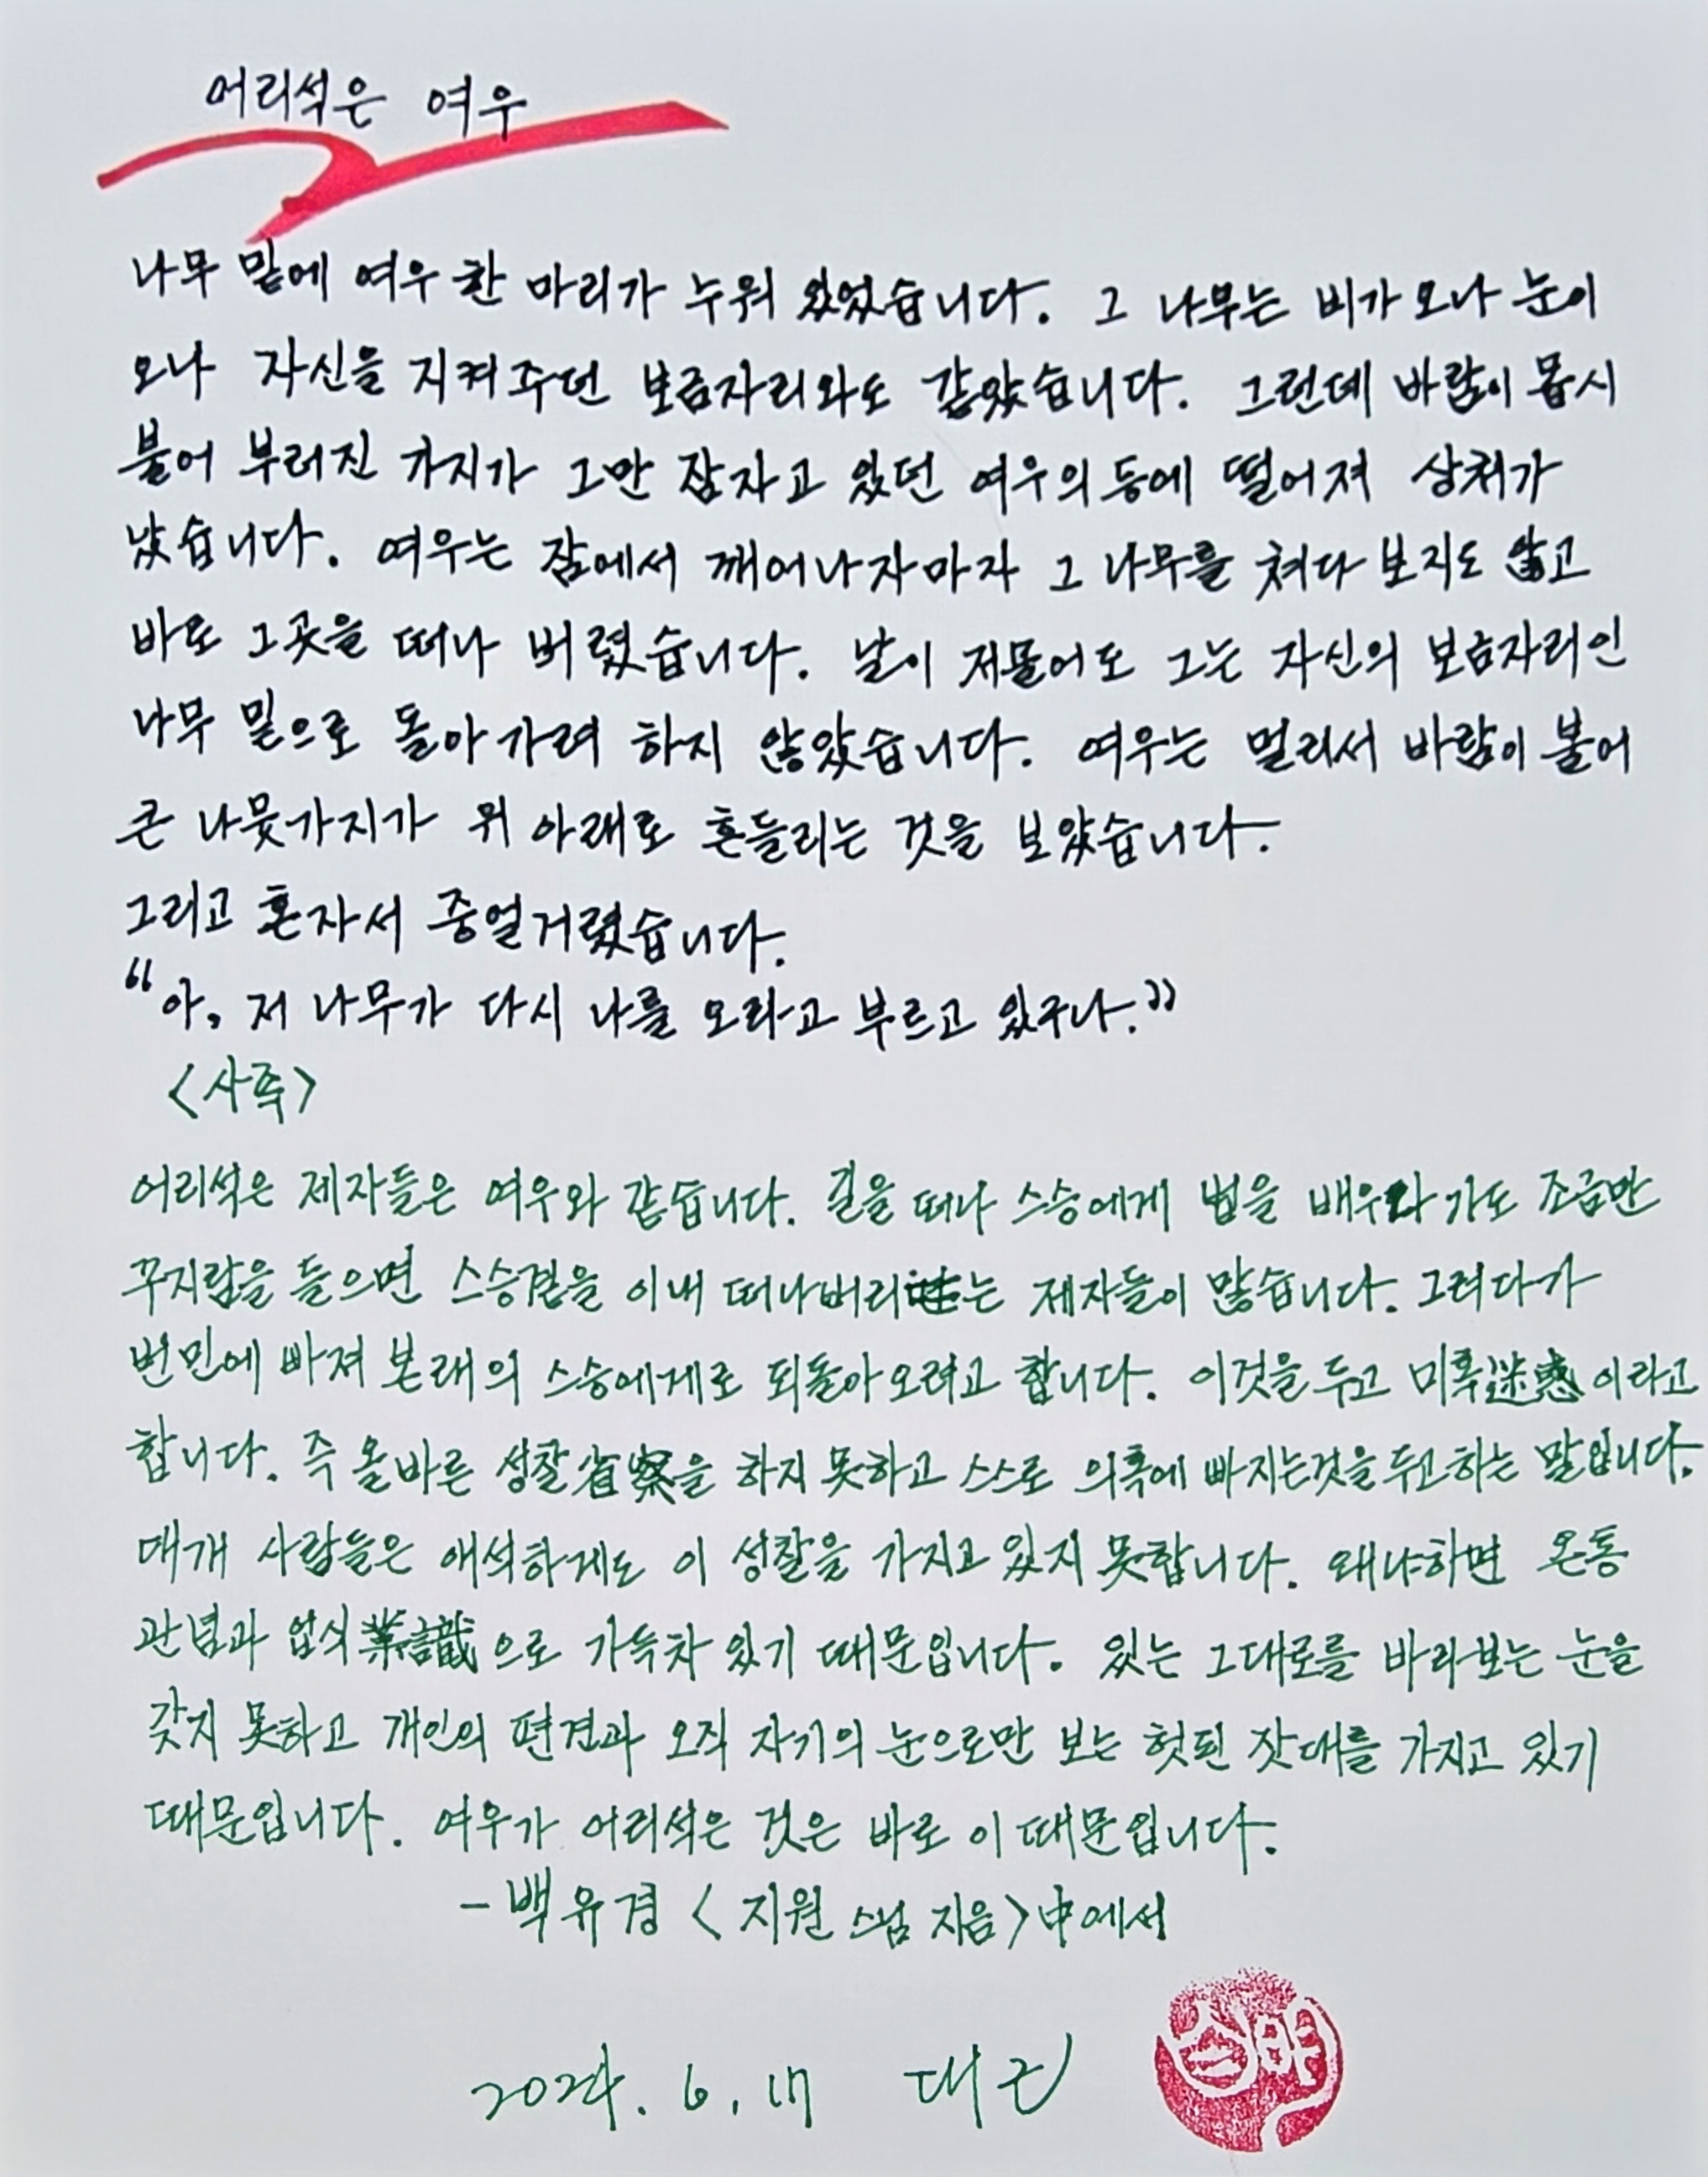 어리석은 여우
나무 밑에 여우 한 마리가 누워 있었습니다. 그 나무는 비가 오나 눈이
오나 자신을 지켜 주던 보금자리와도 같았습니다. 그런데 바람이 몹시
불어 부러진 가지가 그만 잠자고 있던 여우의 등에 떨어져 상처가
났습니다. 여우는 잠에서 깨어나자마자 그 나무를 쳐다 보지도 않고
바로 그곳을 떠나 버렸습니다. 날이 저물어도 그는 자신의 보금자리인
나무 밑으로 돌아가려 하지 않았습니다. 여우는 멀리서 바람이 불어
큰 나뭇가지가 위 아래로 흔들리는 것을 보았습니다.
그리고 혼자서 중얼거렸습니다.
“아, 저 나무가 다시 나를 오라고 부르고 있구나.”
<사족>
어리석은 제자들은 여우와 같습니다. 길을 떠나 스승에게 법을 배우다가도 조금만
꾸지람을 들으면 스승곁을 이내 떠나버리는 제자들이 많습니다. 그러다가
번민에 빠져 본래의 스승에게로 되돌아오려고 합니다. 이것을 두고 미혹迷惑이라고
합니다. 즉 올바른 성찰省察을 하지 못하고 스스로 의혹에 빠지는것을 두고하는 말입니다.
대개 사람들은 애석하게도 이 성찰을 가지고 있지 못합니다. 왜냐하면 온통
관념과 업식業識으로 가득차 있기 때문입니다. 있는 그대로를 바라보는 눈을
갖지 못하고 개인의 편견과 오직 자기의 눈으로만 보는 헛된 잣대를 가지고 있기
때문입니다. 여우가 어리석은 것은 바로 이 때문입니다.
- 백유경 <지원 스님 지음> 中에서
2024. 6. 17 대근